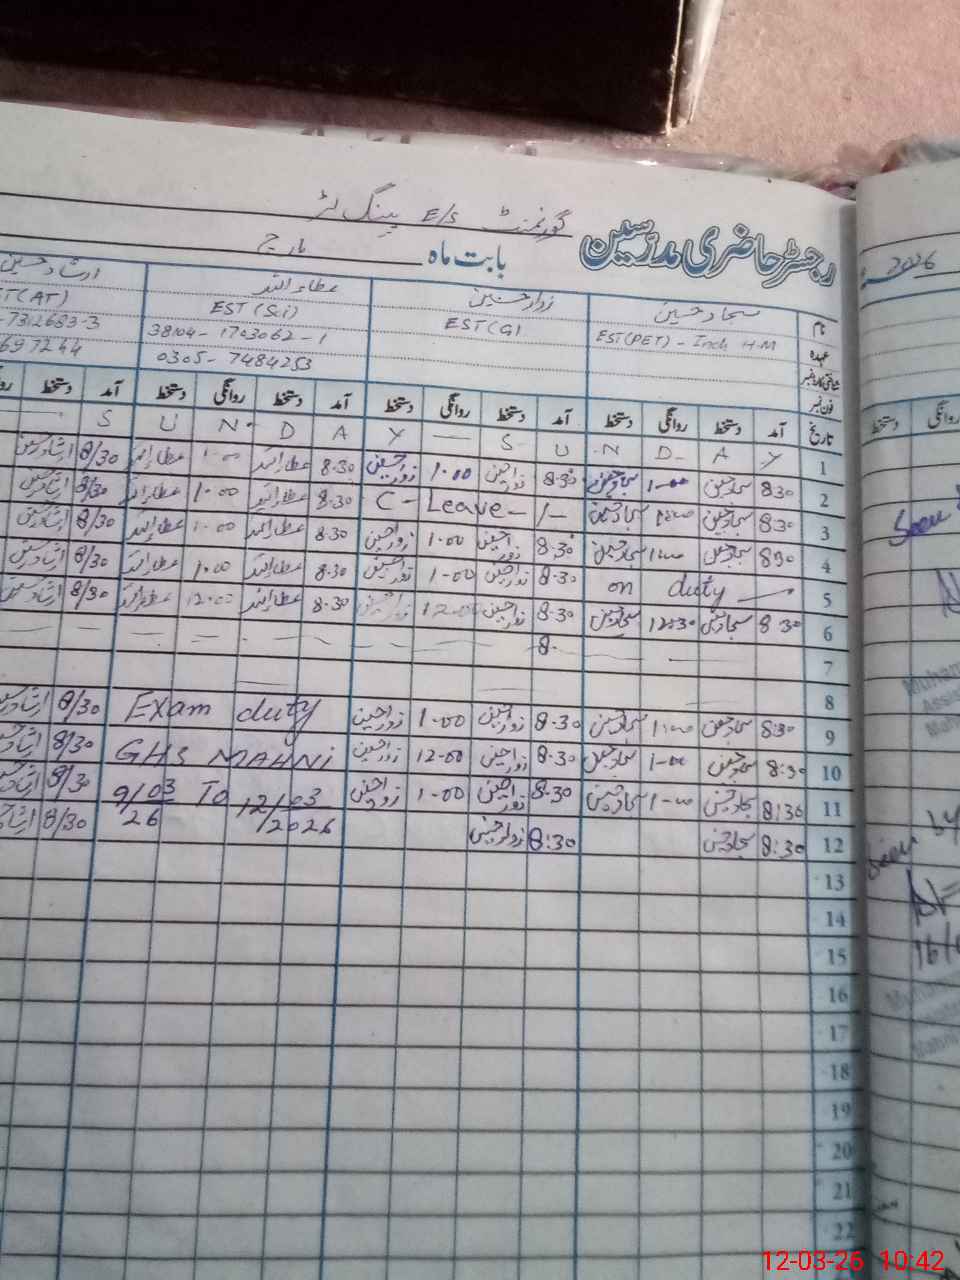 رجسٹر حاضری مدرسین گورنمنٹ E/S پینگ لٹر
بابت ماہ مارچ
2026
نام سجاد حسین زوار حسین عطاء اللہ ارشاد حسین
عہدہ EST(PET) - Inch H.M EST(G) EST (Sci) (AT)
شناختی کارڈ نمبر 38104-1703062-1 7312683-3
فون نمبر 0305-7484253
تاریخ آمد دستخط روانگی دستخط آمد دستخط روانگی دستخط آمد دستخط روانگی دستخط آمد دستخط
1 S U N D A Y — S U N D A Y
2 8:30 سجاد حسین 1-00 سجاد حسین 8:30 زوار حسین 1.00 زوار حسین 8.30 عطاء اللہ 1-00 عطاء اللہ 8/30 ارشاد حسین
3 8:30 سجاد حسین 1:00 سجاد حسین C - Leave - 1 - 8.30 عطاء اللہ 1.00 عطاء اللہ 8/30 ارشاد حسین
4 8:30 سجاد حسین 1:00 سجاد حسین 8.30 زوار حسین 1.00 زوار حسین 8.30 عطاء اللہ 1.00 عطاء اللہ 8/30 ارشاد حسین
5 on duty 8.30 زوار حسین 1-00 زوار حسین 8.30 عطاء اللہ 1.00 عطاء اللہ 8/30 ارشاد حسین
6 8:30 سجاد حسین 12:30 سجاد حسین 8.30 زوار حسین 12-00 زوار حسین 8.30 عطاء اللہ 12.00 عطاء اللہ 8/30 ارشاد حسین
7 8.
8
9 8:30 سجاد حسین 1:00 سجاد حسین 8.30 زوار حسین 1-00 زوار حسین Exam duty 8/30 ارشاد حسین
10 8:30 سجاد حسین 1-00 سجاد حسین 8.30 زوار حسین 12-00 زوار حسین GHS MAHNI 8/30 ارشاد حسین
11 8:30 سجاد حسین 1-00 سجاد حسین 8.30 زوار حسین 1-00 زوار حسین 9/03/26 To 12/03/2026 8/30 ارشاد حسین
12 8:30 سجاد حسین 8:30 زوار حسین 8/30
13
14
15
16
17
18
19
20
21
22
روانگی دستخط
Seen
Seen by
16/
12-03-26 10:42